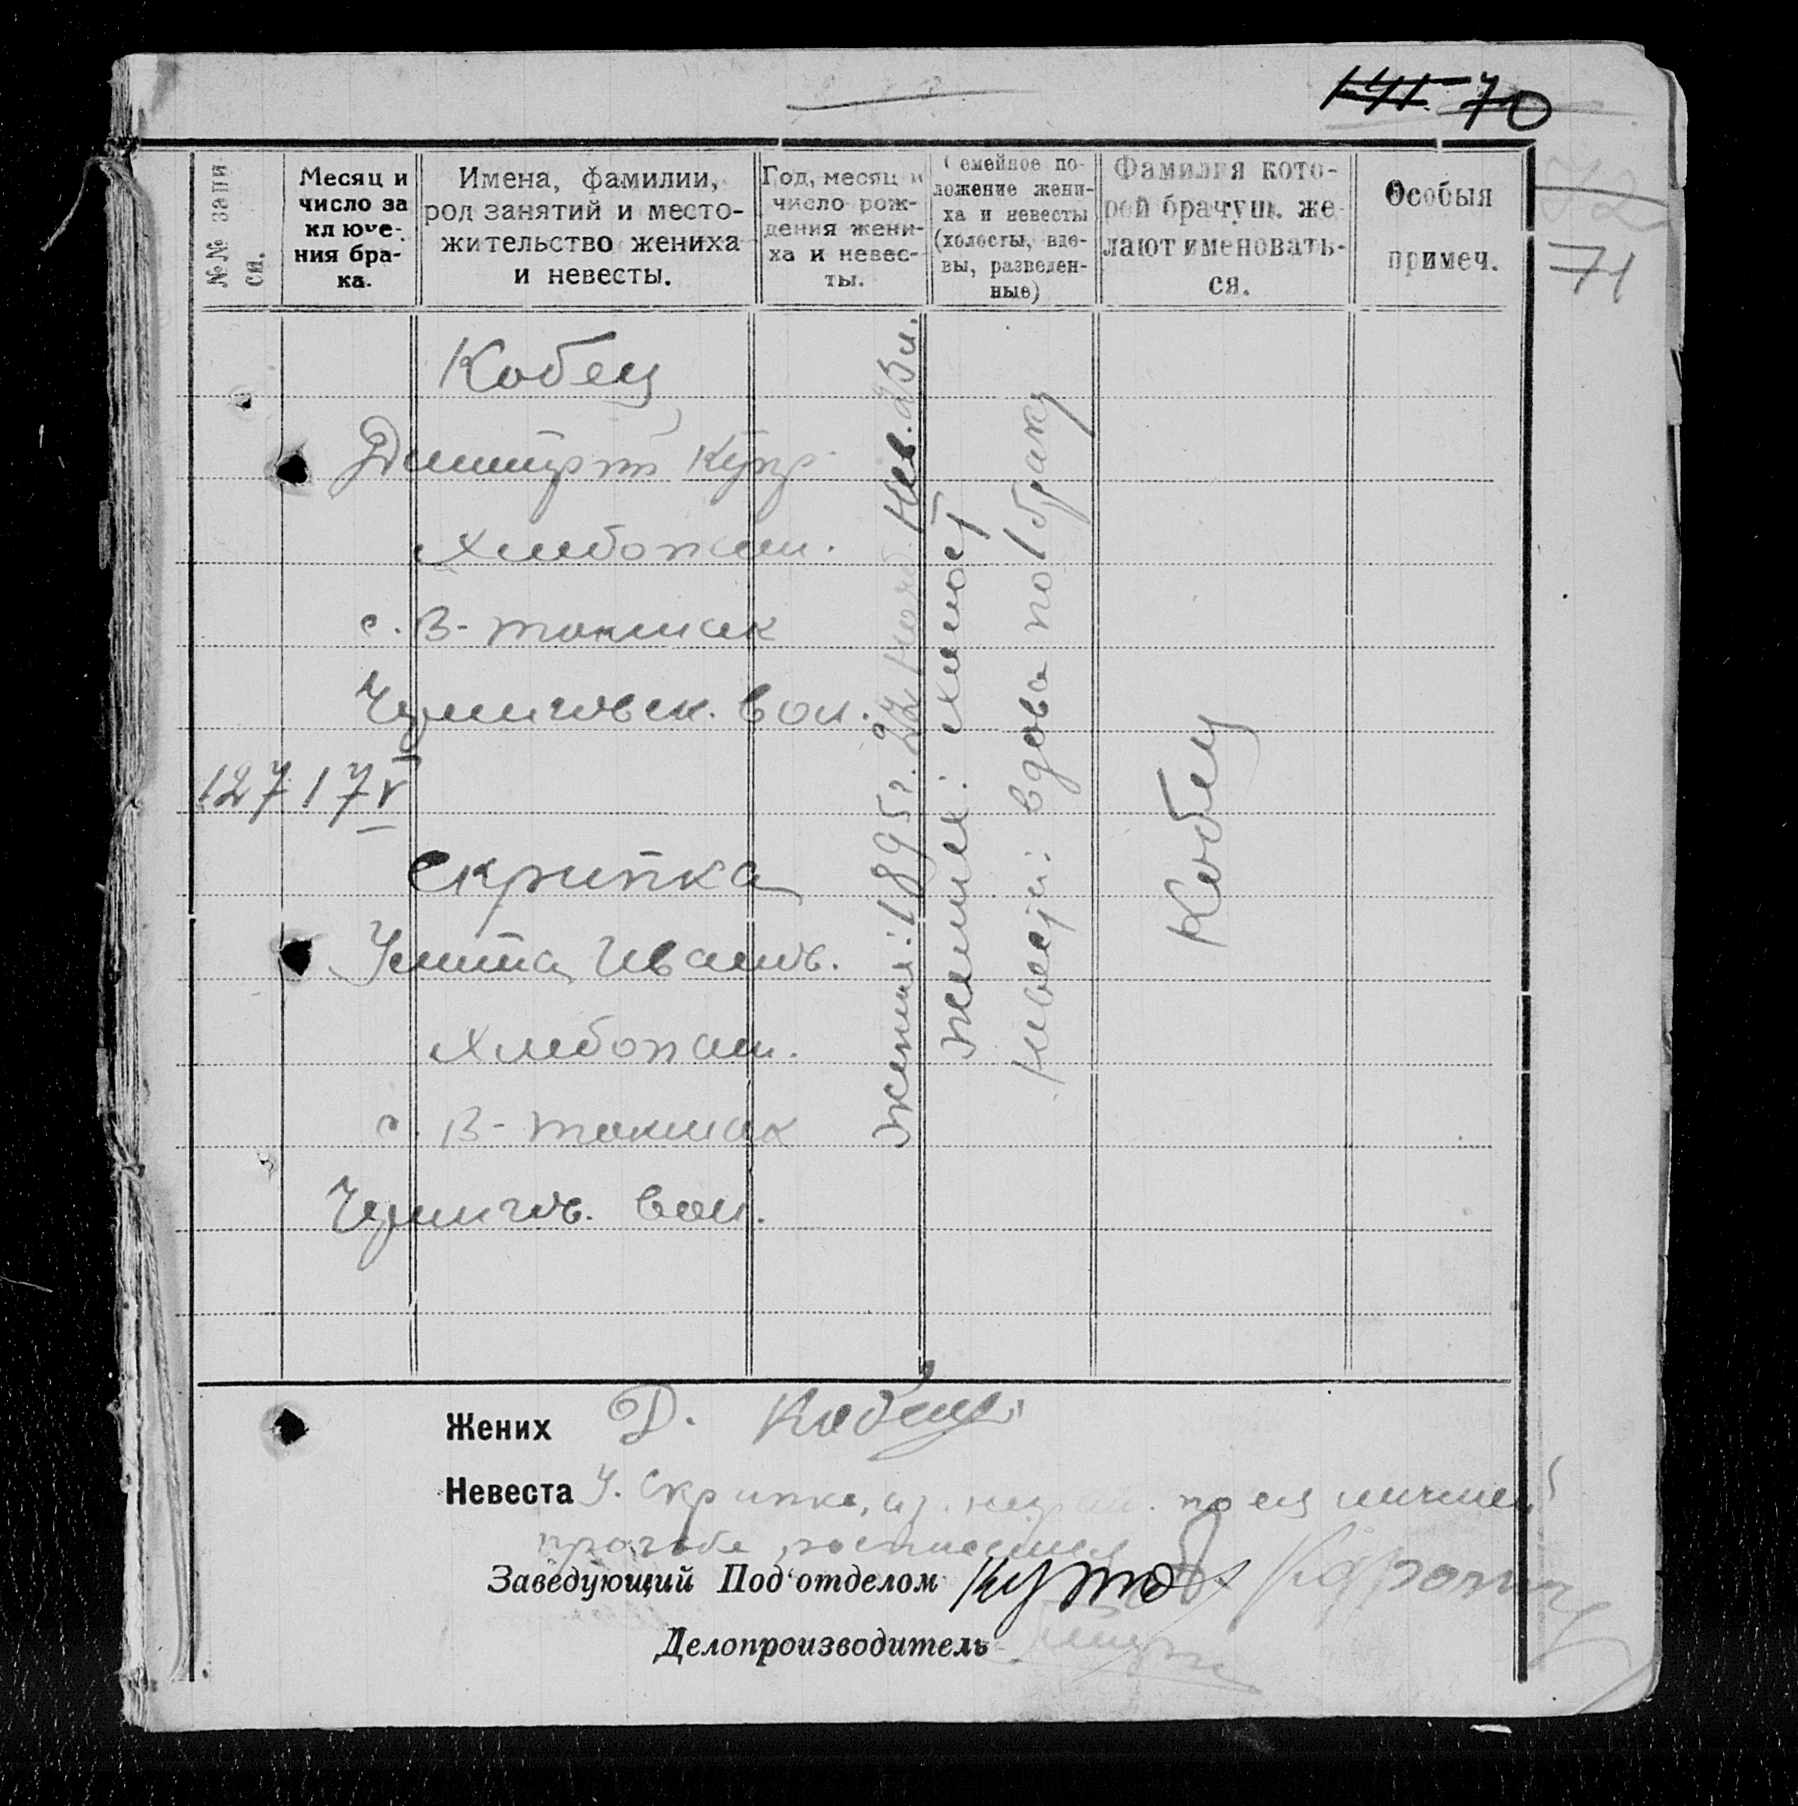 70
72
71
№№ запи
си.
Месяц и
число за
ключе-
ния бра-
ка.
Имена, фамилии,
род занятий и место-
жительство жениха
и невесты.
Год, месяц и
число рож-
дения жени-
ха и невес-
ты.
Семейное по-
ложение жени-
ха и невесты
(холосты, вдо-
вы, разведен-
ные)
Фамилия кото-
рой брачущ. же-
лают именовать-
ся.
Особыя
примеч.
Кобец
Димитрий Купр.
Хлебопаш.
с. В-Токмак
Черниговск. вол.
127 17 V
Скрипка
Улита Иванов.
Хлебопаш.
с. В-Токмак
Чернигов. вол.
жених: 1895 г. 22 Нояб. Нев. 23 л.
жених: холост
невест: вдова по 1 браку
Кобец
Жених Д. Кобец
Невеста У. Скрипка, по ея личной
прозьбе росписался
Заведующий Под‘отделом
Делопроизводитель